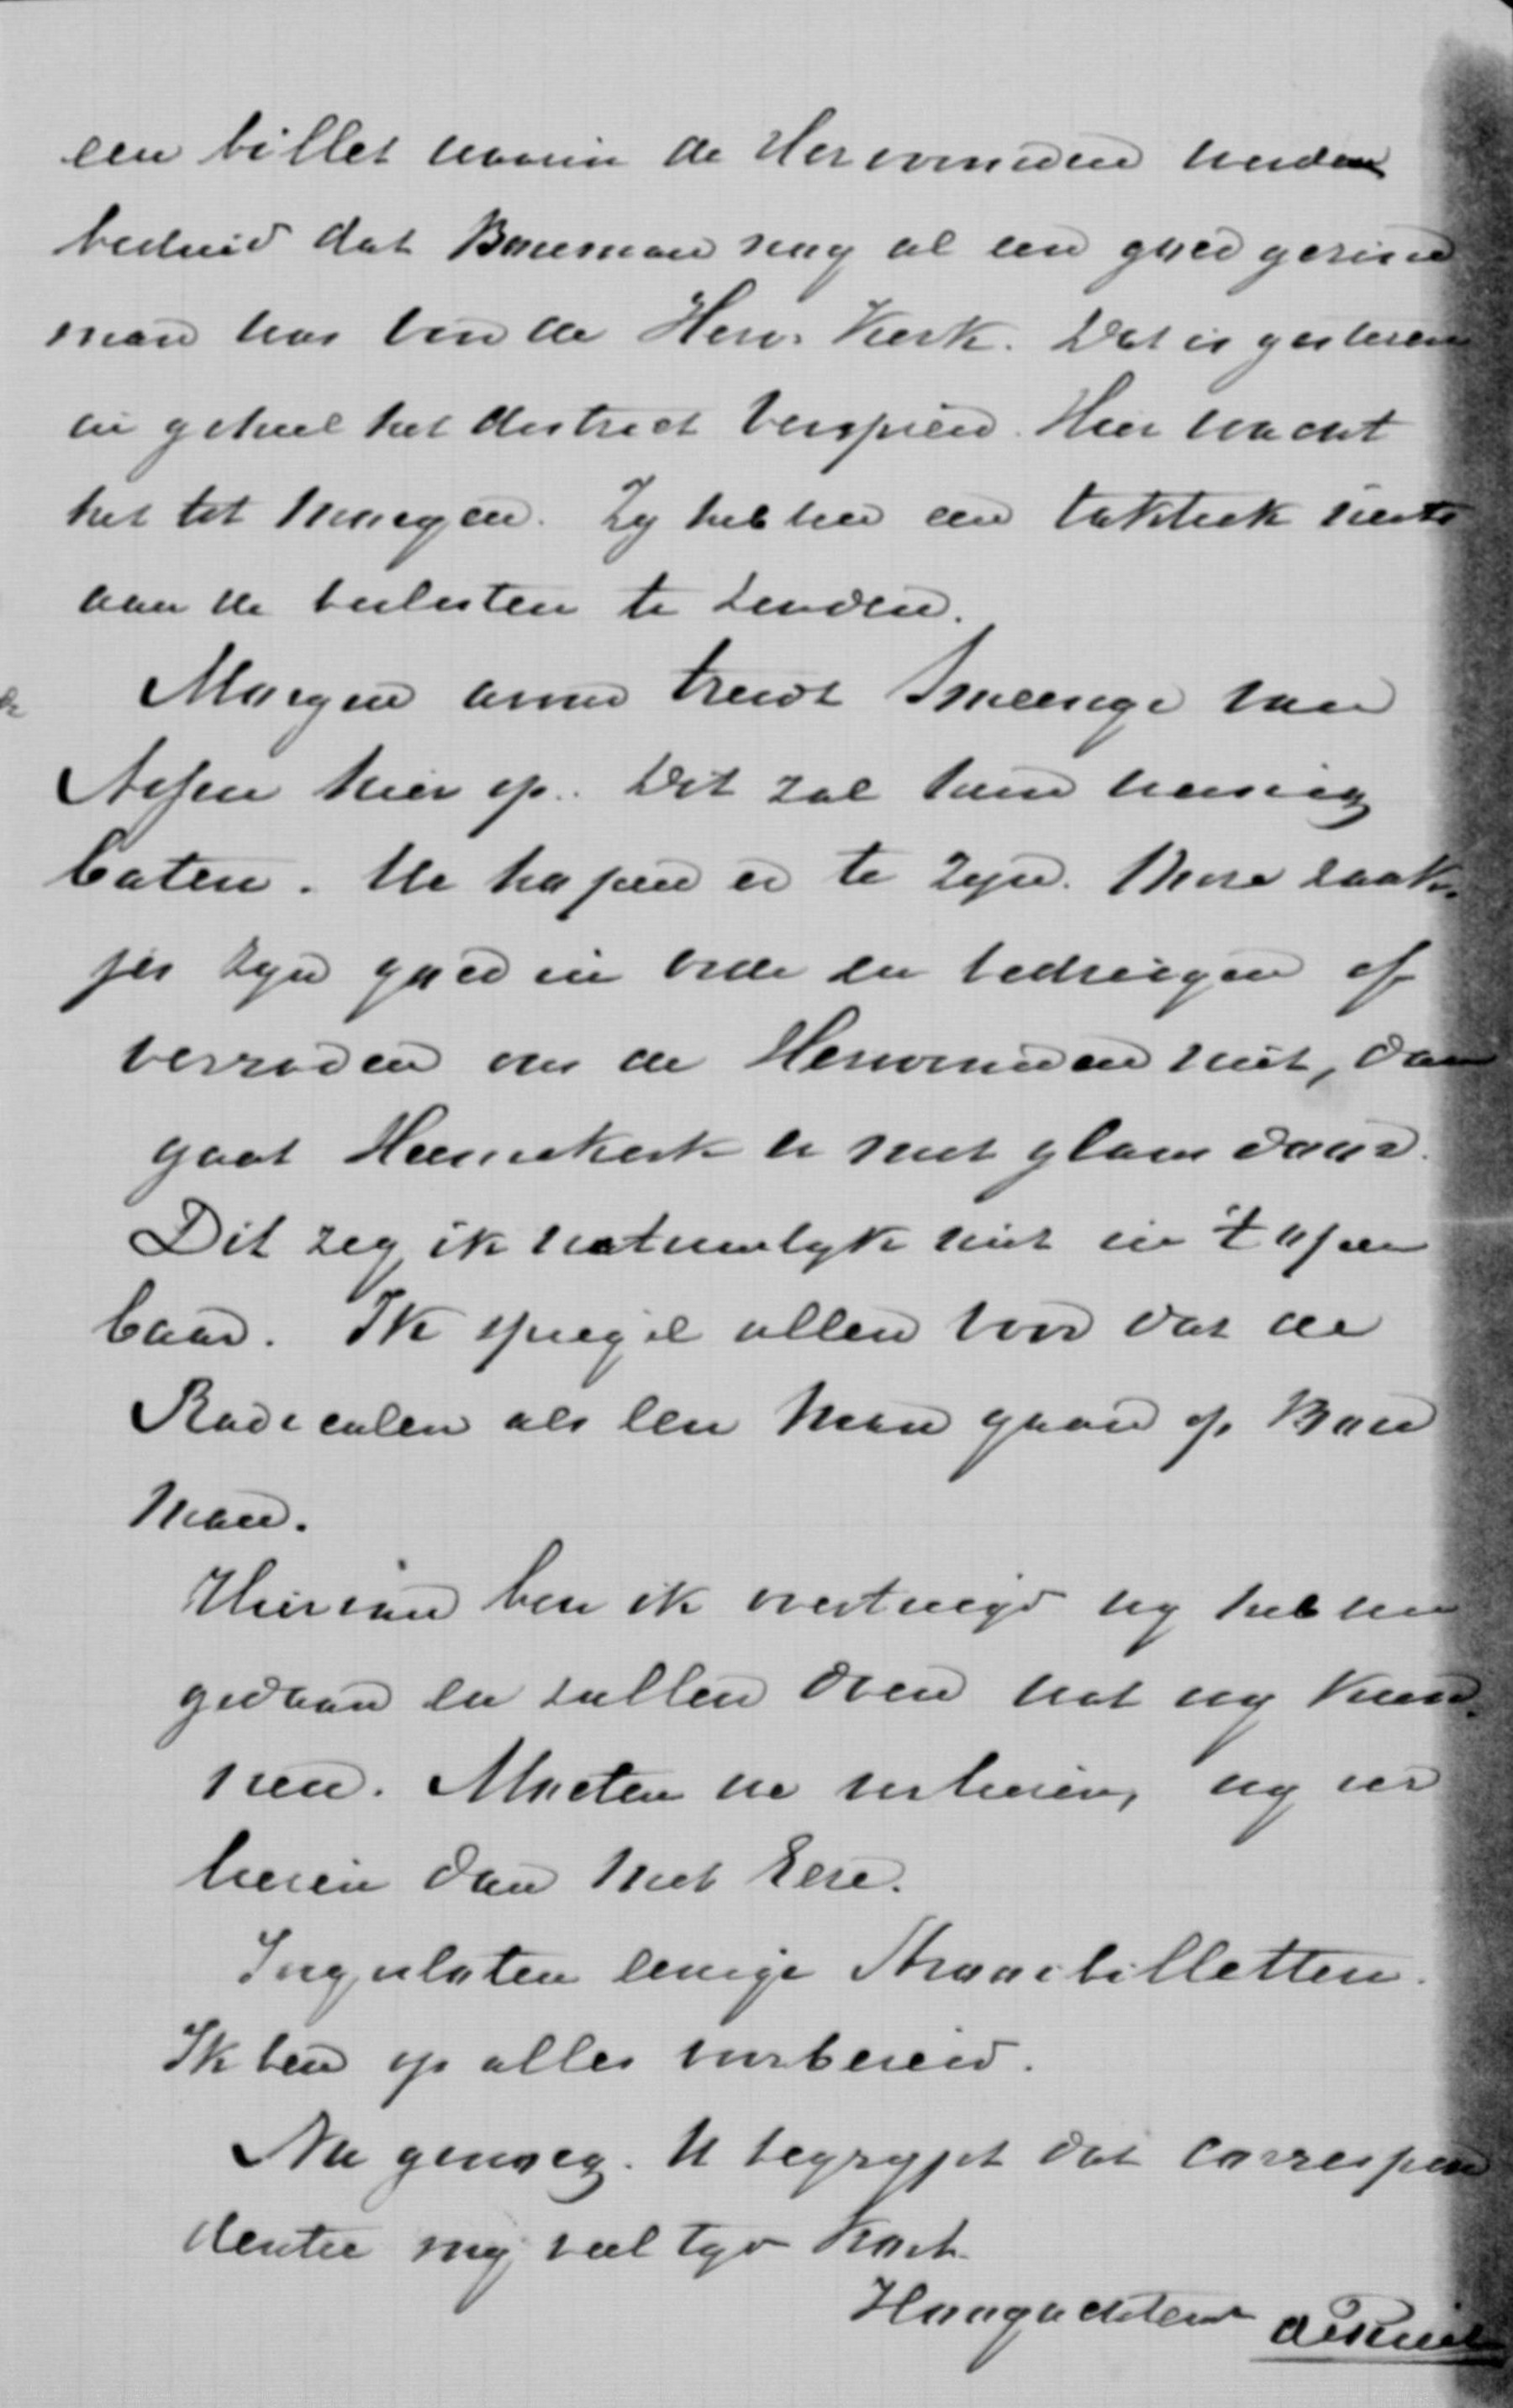 een billet waarin de Hervormden werden
beduid dat Bouman nog al een goed gezind
man was van de Herv. Kerk. Dat is gisteren
in geheel het district verspreid. Hier wacht
het tot morgen. Zy hebben een taktiek niets
aan de beslisten te zenden.
Morgen avond treedt Smeenge van
Assen hier op. Dit zal hem weinig
baten. We hopen er te zyn. Onze zaak-
jes zyn goed in orde en bedriegen of
verraden ons de Hervormden niet, dan
gaat Heemskerk er met glans door.
Dit zeg ik natuurlyk niet in 't open
baar. Ik spiegel allen voor dat de
Radicalen als een man gaan op Bou
man.
Hiervan ben ik overtuigd wy hebben
gedaan en zullen doen wat wy kun-
nen. Moeten we verliezen, wy ver
liezen dan met Eere.
Ingesloten eenige Strooibilletten.
Ik ben op alles voorbereid.
Nu genoeg. U begrypt dat correspon
dentie my veel tyd kost.
Hoogachtend